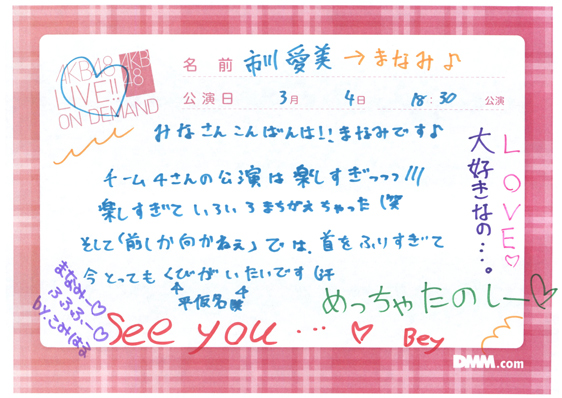 AKB48
LIVE!!
ON DEMAND
AKB
48
名 前 市川 愛美 → まなみ♪
公演日 3月 4日 18:30 公演
みなさんこんばんは!! まなみです♪
チーム4さんの公演は楽しすぎっっっ///
楽しすぎていろいろまちがえちゃった(笑
そして「前しか向かねえ」では、首をふりすぎて
今とってもくびがいたいです(汗
平仮名(笑
大好きなの…。
LOVE♡
まなみー♡
ふふふー♡
by.こみはる
めっちゃたのしー♡
See you... ♡ Bey
DMM.com